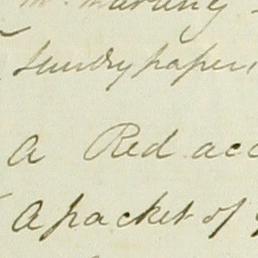 sundry papers
a Red acc
a packet of